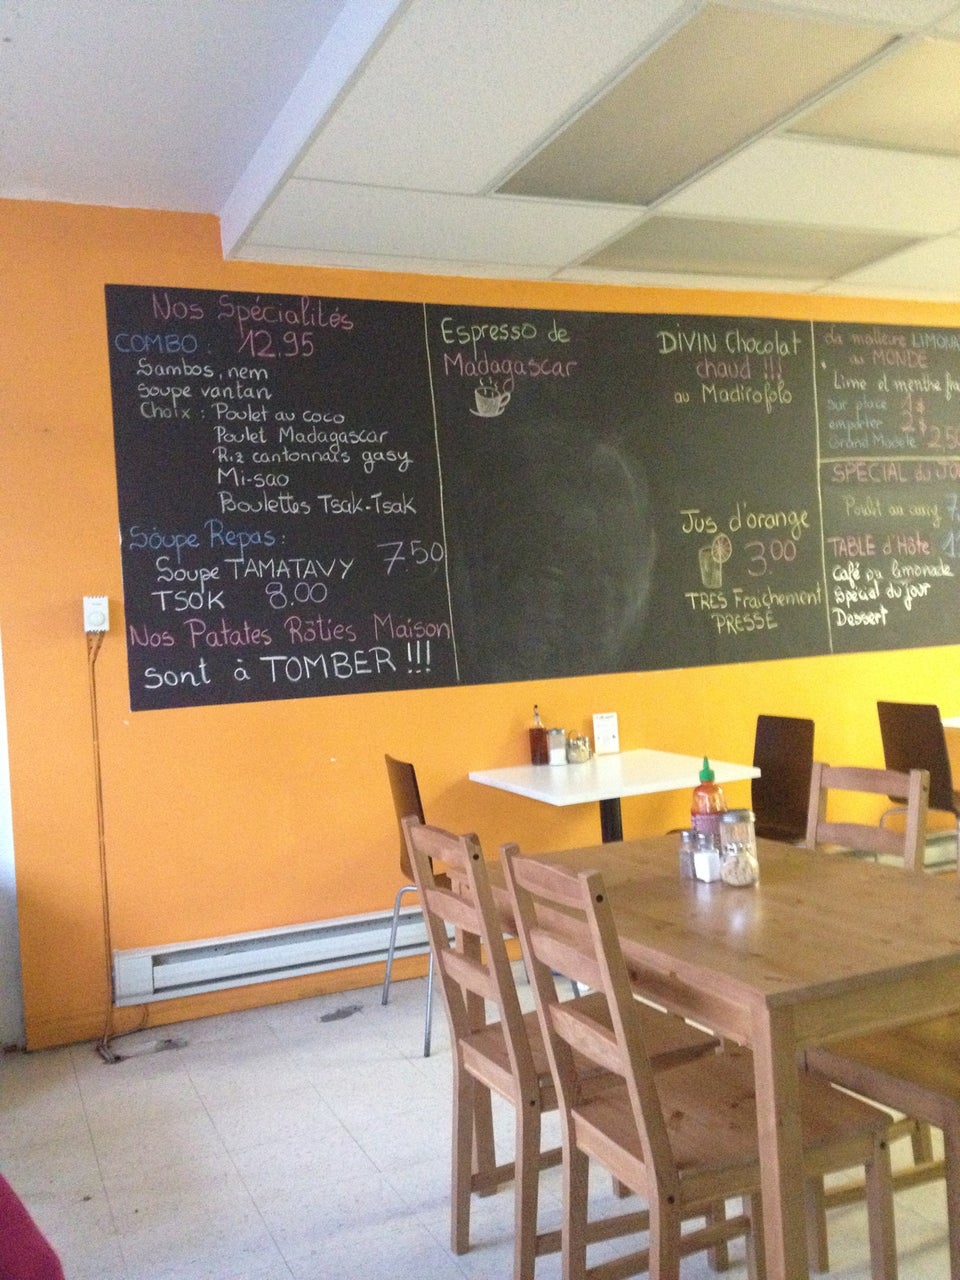 Nos Spécialités
COMBO : 12.95
Sambos, nem
Soupe vantan
Choix : Poulet au coco
Poulet Madagascar
Riz cantonnais gasy
Mi-sao
Boulettes Tsak-Tsak
Soupe Repas :
Soupe TAMATAVY 7.50
TSOK 8.00
Nos Patates Rôties Maison
sont à TOMBER !!!
Espresso de
Madagascar
DIVIN Chocolat
chaud !!!
au Madirofolo
Jus d'orange
3.00
TRES Fraichement
PRESSÉ
La meilleure LIMONA
au MONDE
Lime et menthe fra
sur place 1$
emporter 2$
Grand Modele 2,50
SPECIAL du JO
Poulet au curry 7
TABLE d'Hôte 1
Café ou limonade
spécial du jour
Dessert